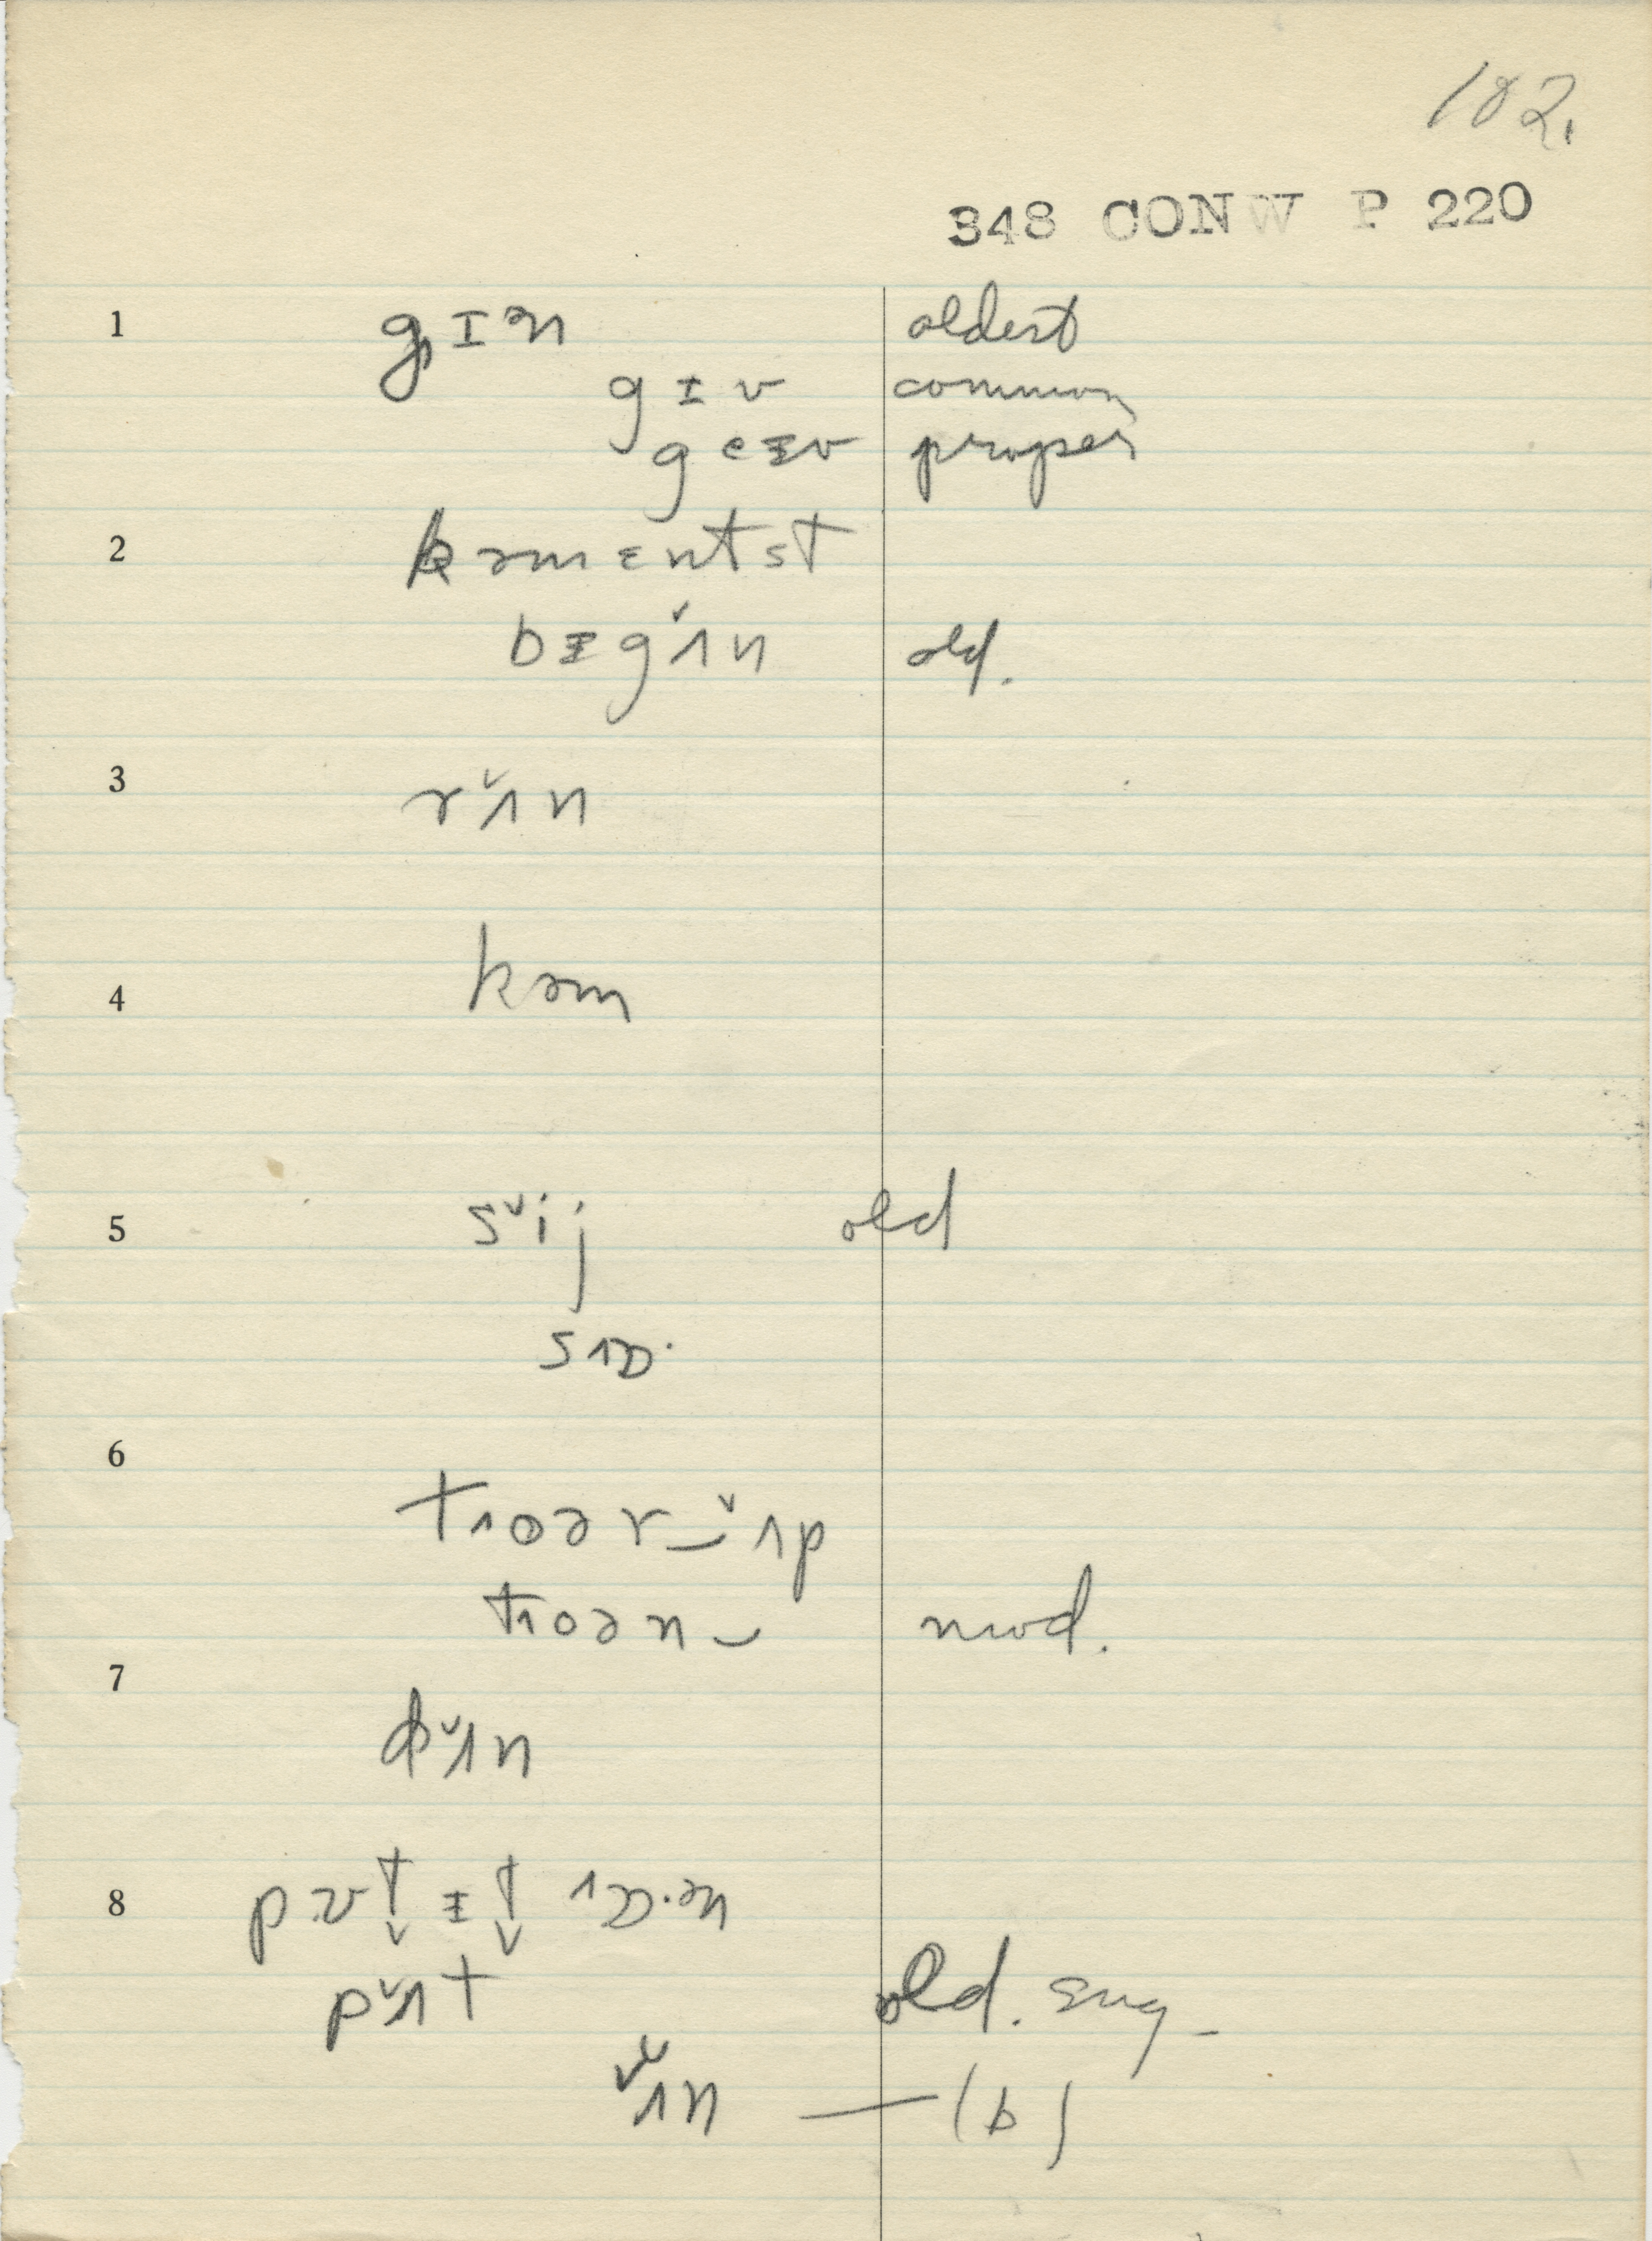 182.
348 CONW P 220
1 gɪən oldest
gɪv common
geɪv proper
2 kəmentst
bɪgˇʌn old.
3 rˇʌn
4 kəm
5 sˇij old
sʌɒ·
6 tʌoər‿ˇʌp
tʌoən‿ mod.
7 dˇʌn
8 ʌɒ·ən
pˇʌt old. eng.
ˇʌn — (b)